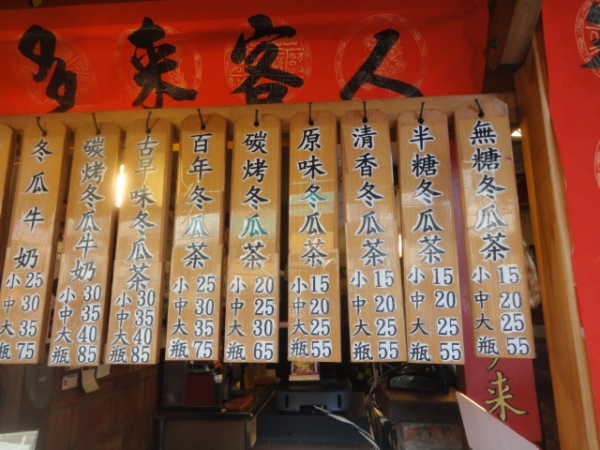 人客來多
無糖冬瓜茶
小 15
中 20
大 25
瓶 55
半糖冬瓜茶
小 15
中 20
大 25
瓶 55
清香冬瓜茶
小 15
中 20
大 25
瓶 55
原味冬瓜茶
小 15
中 20
大 25
瓶 55
碳烤冬瓜茶
小 20
中 25
大 30
瓶 65
百年冬瓜茶
小 25
中 30
大 35
瓶 75
古早味冬瓜茶
小 30
中 35
大 40
瓶 85
碳烤冬瓜牛奶
小 30
中 35
大 40
瓶 85
冬瓜牛奶
小 25
中 30
大 35
瓶 75
來